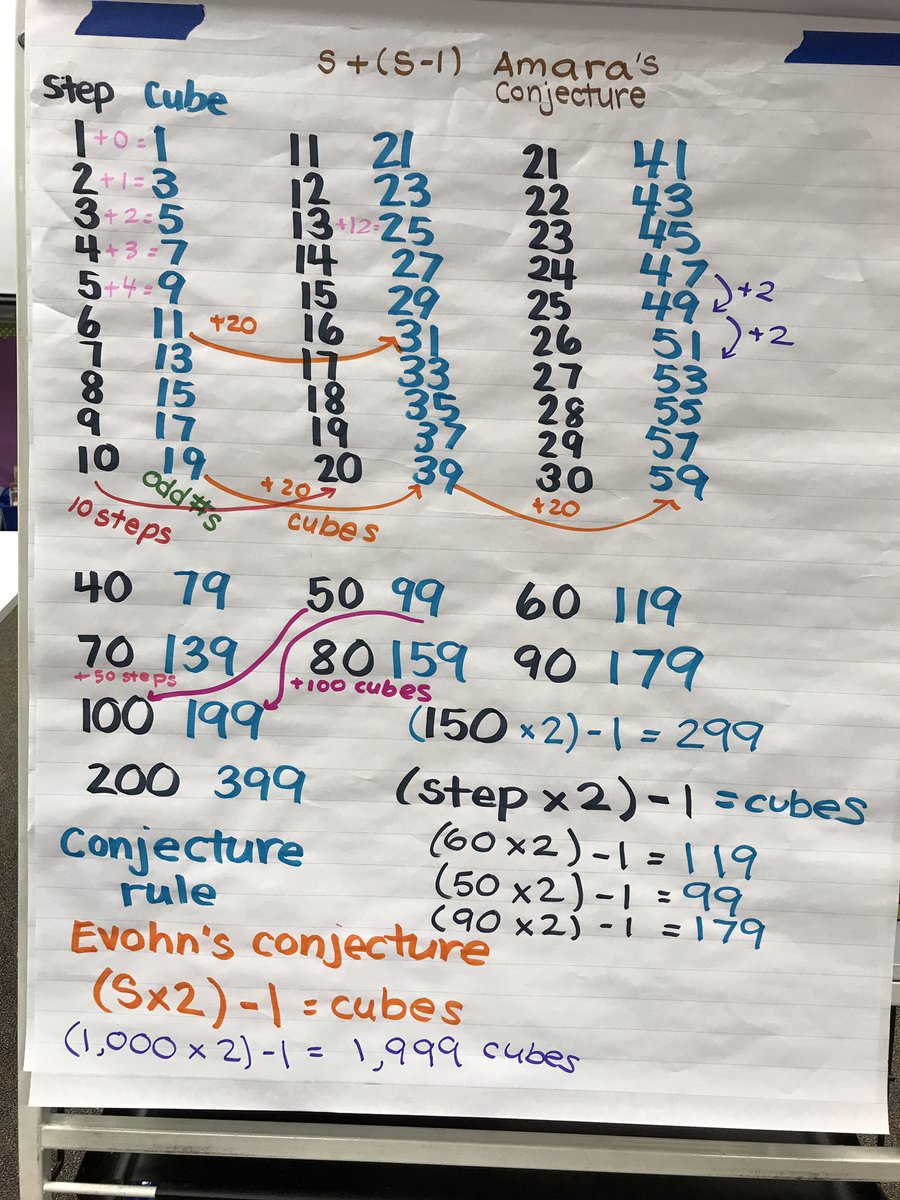 S+(S-1) Amara's
Conjecture
Step Cube
1 +0= 1 11 21 21 41
2 +1= 3 12 23 22 43
3 +2= 5 13 +12= 25 23 45
4 +3= 7 14 27 24 47
5 +4= 9 15 29 25 49 +2
6 11 +20 16 31 26 51 +2
7 13 17 33 27 53
8 15 18 35 28 55
9 17 19 37 29 57
10 19 20 39 30 59
10 steps odd #s +20 cubes +20
40 79 50 99 60 119
70 139 80 159 90 179
+50 steps +100 cubes
100 199 (150 ×2)-1 = 299
200 399 (step ×2)-1 = cubes
(60 ×2)-1 = 119
Conjecture (50 ×2)-1 = 99
rule (90 ×2)-1 = 179
Evohn's conjecture
(S×2)-1 = cubes
(1,000 ×2)-1 = 1,999 cubes